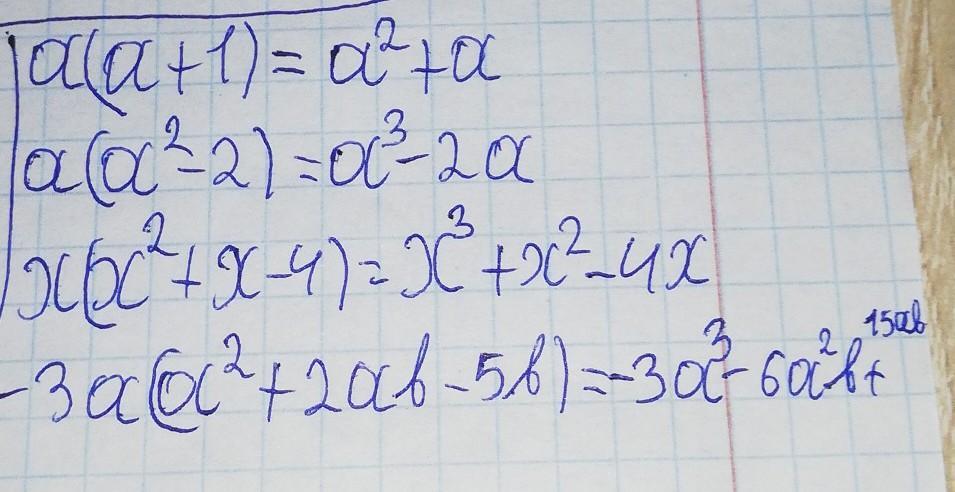 a(a+1)=a²+a
a(a²-2)=a³-2a
x(x²+x-4)=x³+x²-4x
-3a(a²+2ab-5b)=-3a³-6a²b+15ab